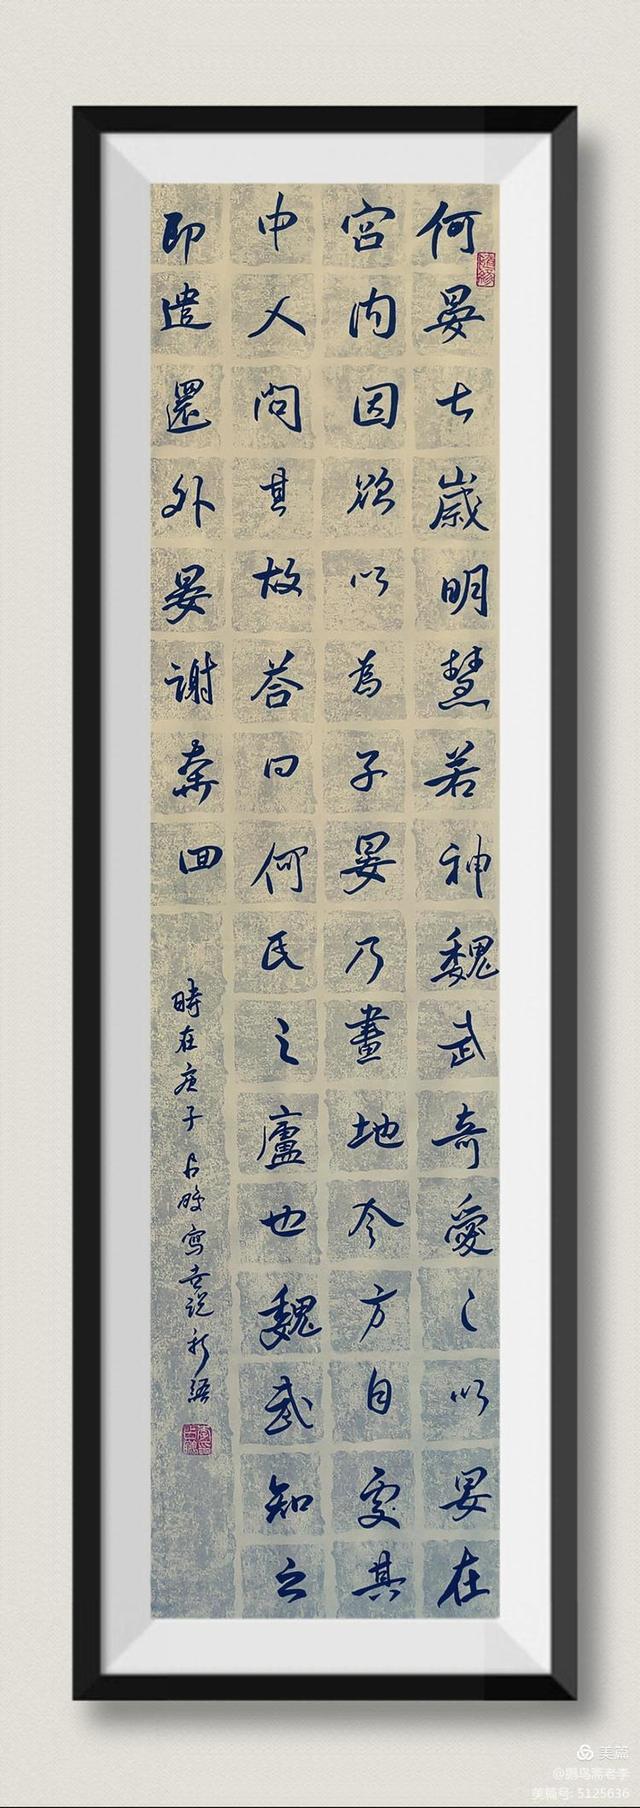 何晏七歲明慧若神魏武奇愛之以晏在
宮内因欲以為子晏乃畫地令方自處其
中人問其故答曰何氏之廬也魏武知之
即遣還外晏謝奔回
時在庚子占寫世说新語
美篇
@鹏鸟斋老李
美篇号: 5125636